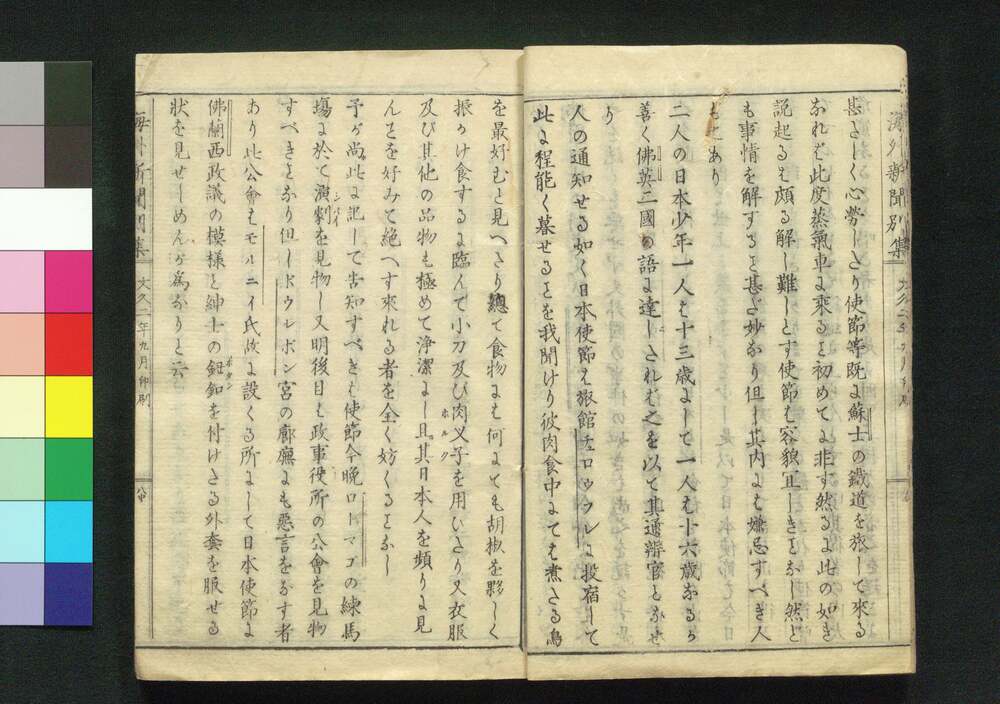 海外新聞別集
甚さしく心勞しさり使節等既に蘇士の鐵道を旅して來る
なれバ此度蒸氣車に乘るヿ初めてに非す然るに此の如き
說起るも頗る解し難しとす使節も容貌正しきヿなし然と
も事情を解するヿ甚ざ妙なり但し其内にも嫌忌すべき人
もヿあり
二人の日本少年一人は十三歳にして一人は十六歳なるが
善く佛英二國の語に達しされば之を以て其通辨官となせ
り
人の通知せる如く日本使節は旅館ヱロウフルに投宿して
此に程能く暮せるヿを我聞けり彼肉食中にても煮さる鳥
を最好むと見へさり總て食物にも何にても胡椒を夥しく
振かけ食するに臨んで小刀及び肉叉子を用ひさり又衣服
ホルク
及び其他の品物も極めて淨潔にし且其日本人を頻りに見
んヿを好みて絶へす來れる者を全く妨くるヿなし
予が尚此に記して告知すべきは使節今晩ロトマゴの練馬
塲に於て演劇を見物し又明後日は政事役所の公會を見物
シバイ
すべきヿなり但しドウレボン宮の廊廡にも惡言をなす者
あり此公會はモルニイ氏故に設くる所にして日本使節に
佛蘭西政議の模樣と紳士の鈕釦を付けさる外套を服せる
ボタン
狀を見せしめんが爲なりと云
海外新聞別集
文久二年九月印刷